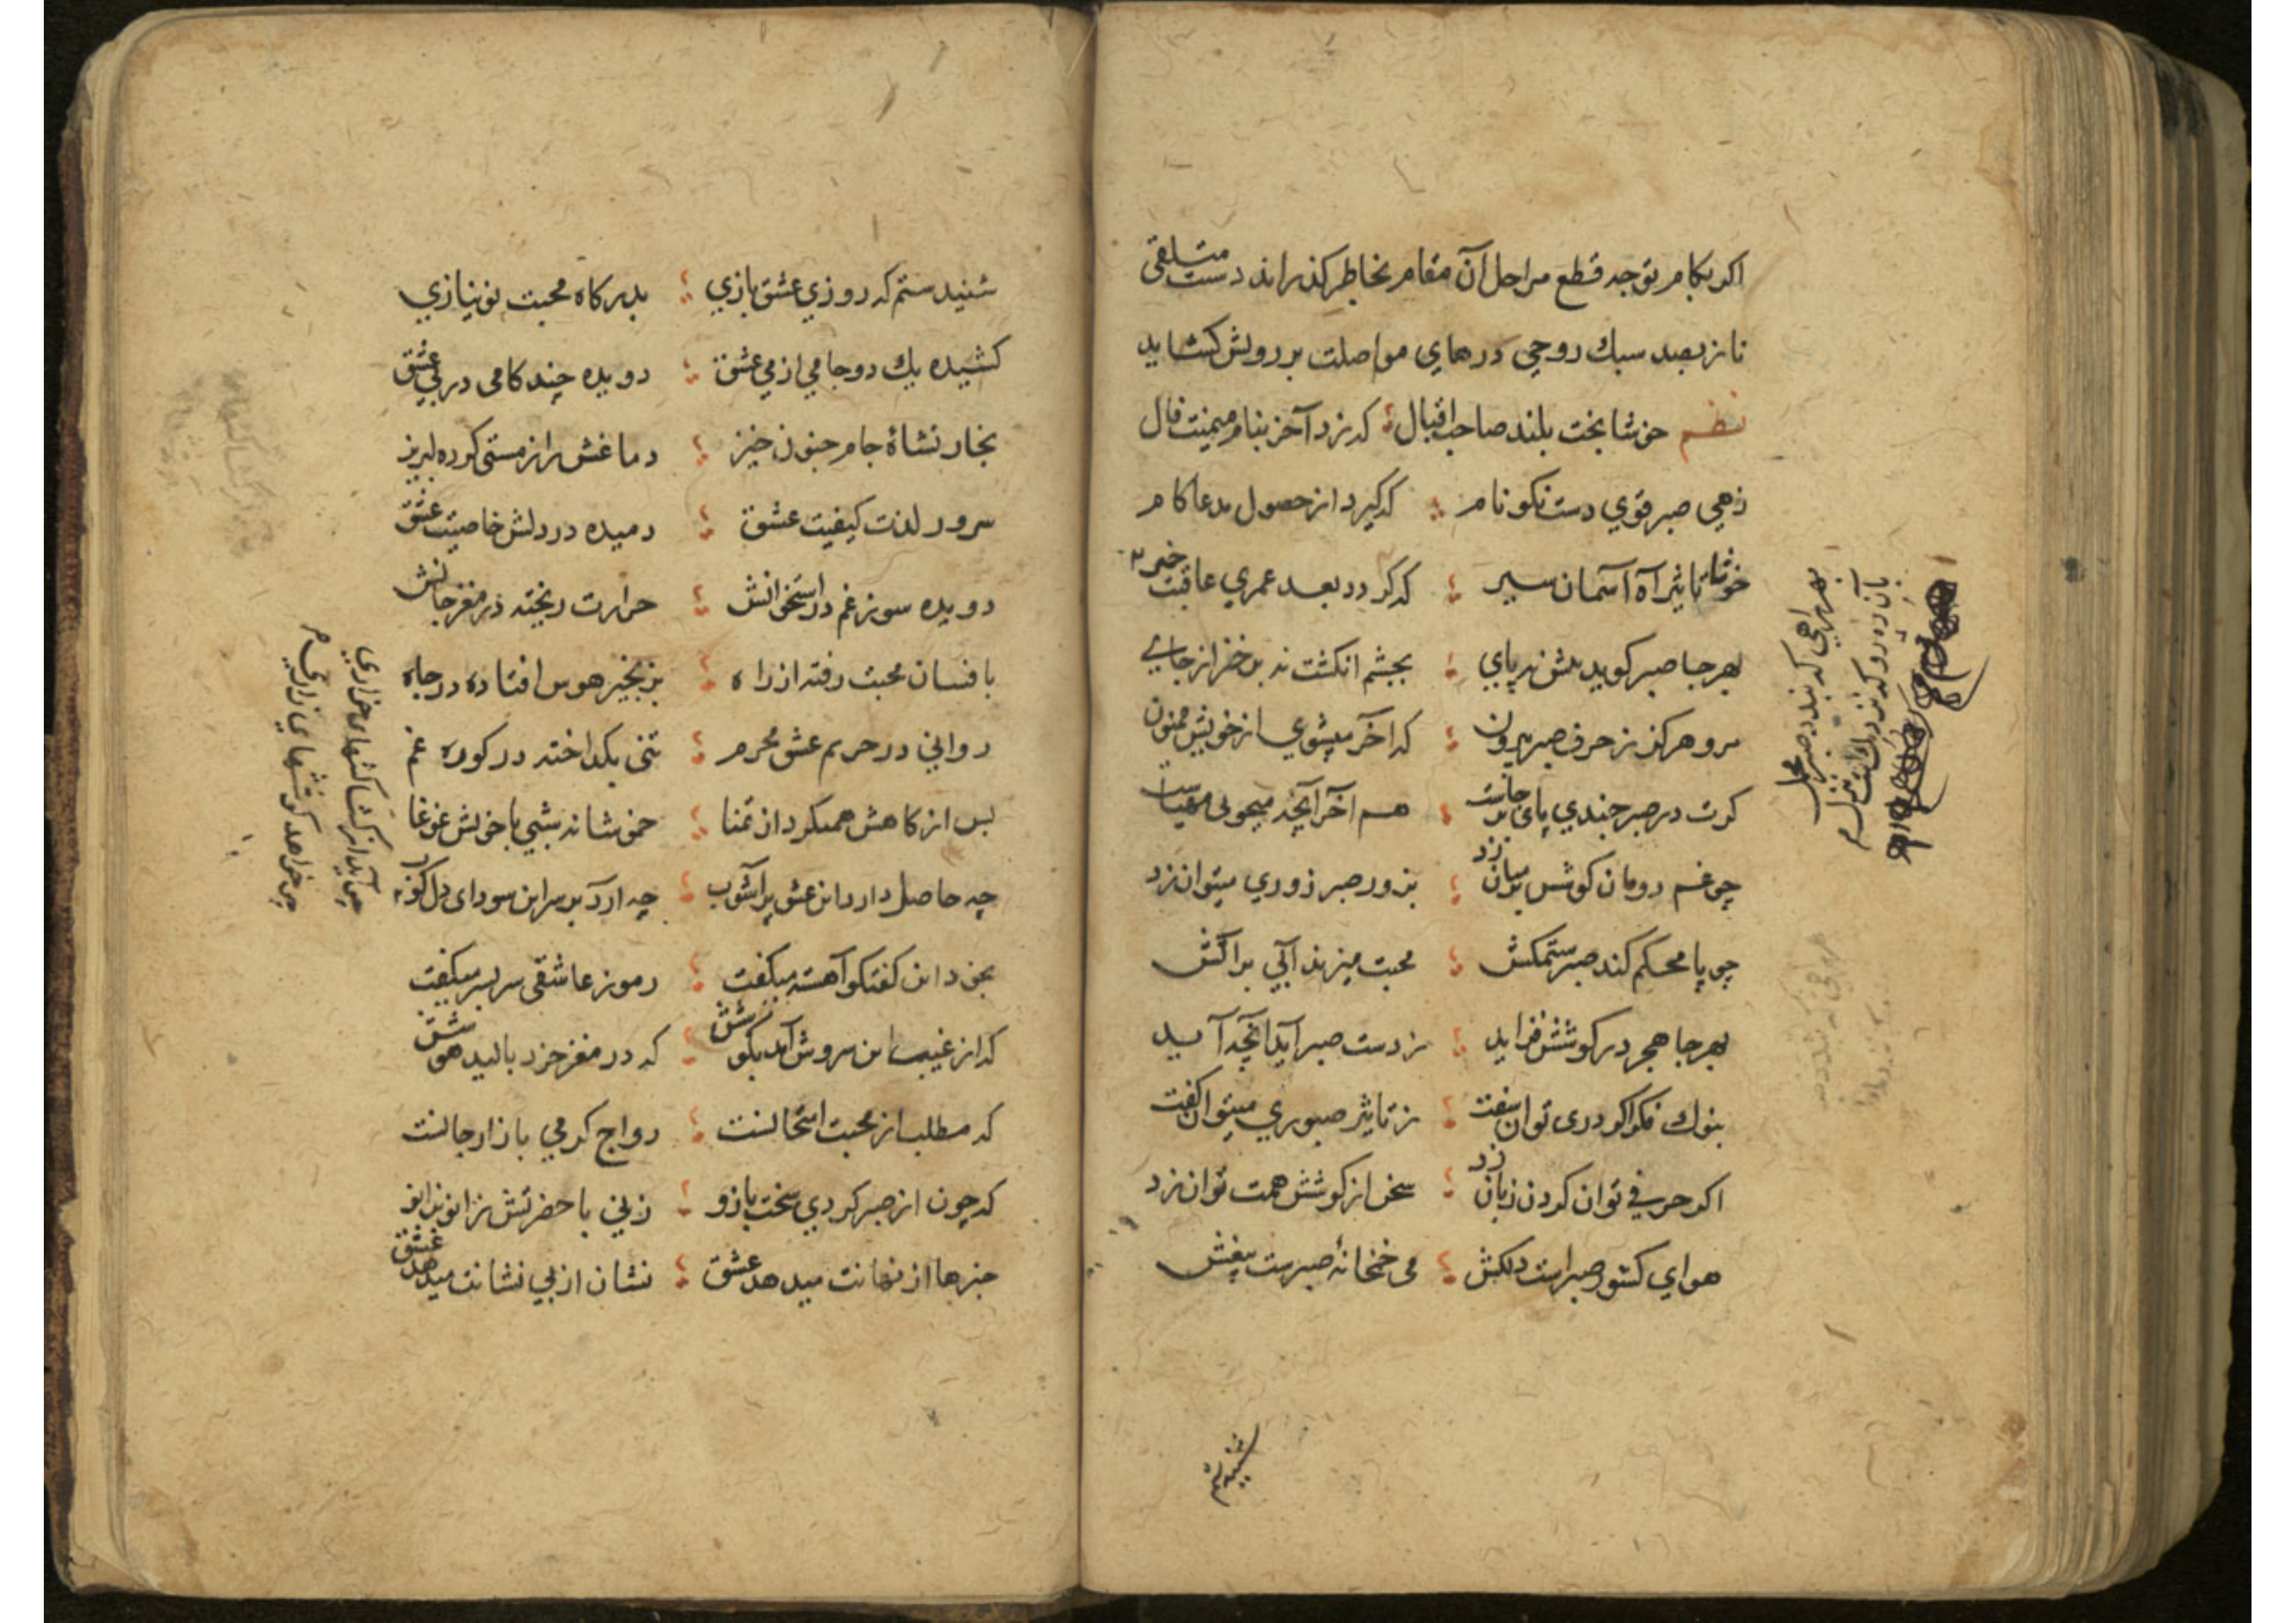 اکر بکام توجه قطع مراحل آن مقام بخاطر کذراند دست متلقی
ناز بصد سبك روحی درهای مواصلت بر رویش کشاید
نظم خوشا بخت بلند صاحب اقبال که نزد آخر بنام میمنت فال
زهی صبر قوي دست نکو نام که کیرد از حصول مدعا کام
خوشا تاثیر آه آسمان سیر که کردد بعد عمري عاقبت خیر
بهر جا صبر کوید پای بچشم انکشت نه از جای
مرو هرکز ز حرف صبر بیرون که آخر میشوي از خویش ممنون
کرت در صبر چندي پای برجاست هم آخر آنچه میجوی
چو غم دومان کوشش بر میان زد بزور صبر زوري میتوان زد
چو پا محکم کند صبر ستمکش محبت میزند آبی بر آتش
بهر جا هجر در کوشش فزاید ز دست صبر آید آنچه آید
بنوك فکر اکر دری توان سفت ز تاثیر صبوري میتوان کفت
اکر حرفی توان کردن زبان زد سخن از کوشش همت توان زد
هوای کشور صبر است دلکش می خمخانهٔ صبرست بیغش
بهر راهی که بندد صبر محمل
بآن ره رو که نزدیك است منزل م
شنیدستم
شنیدستم که روزي عشق بازي بدرکاه محبت نو نیازي
کشیده یك دو جامی از می عشق دویده چند کامی در پی عشق
بخار نشأهٔ جام جنون خیز دماغش را ز مستی کرده لبریز
سرور لذت کیفیت عشق دمیده در دلش خاصیت عشق
دویده سوز غم در استخوانش حرارت ریخته در مغز جانش
بافسان محبت رفته از راه بزنجیر هوس افتاده در چاه
روانی در حریم عشق محرم تنی بکداخته در کوره غم
بس از کاهش همیکرد از تمنا خموشانه شبی با خویش غوغا
چه حاصل دارد این عشق پر آشوب چه آرد بر سر این سودای دل کوب
بخود این کفتکو آهسته میکفت رموز عاشقی سربسر میکفت
که از غیب این سروش آمد بکوشش که در مغز خرد بالید هوشش
که مطلب از محبت امتحانست رواج کرمی بازار جانست
که چون از صبر کردي سخت بازو زنی با حضرتش زانو بزانو
خبرها از نهانت میدهد عشق نشان از بی نشانت میدهد عشق
چی آید از کشاکشهای خواري
چی خواهد کوششهای زاري م